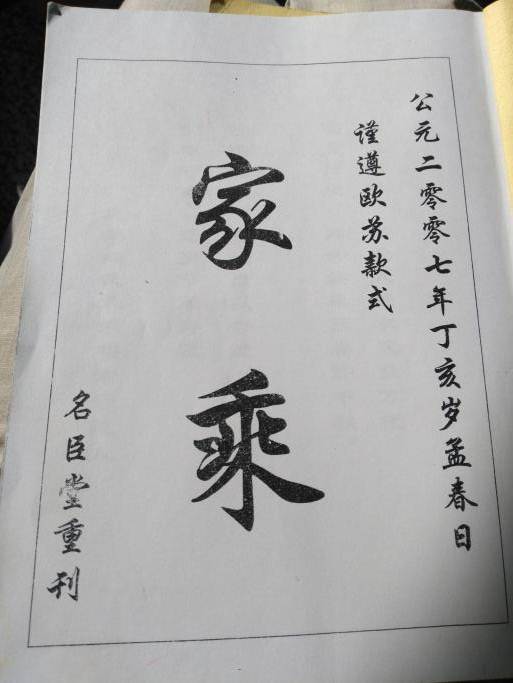 公元二零零七年丁亥岁孟春日
谨遵欧苏款式
家乘
名臣堂重刊